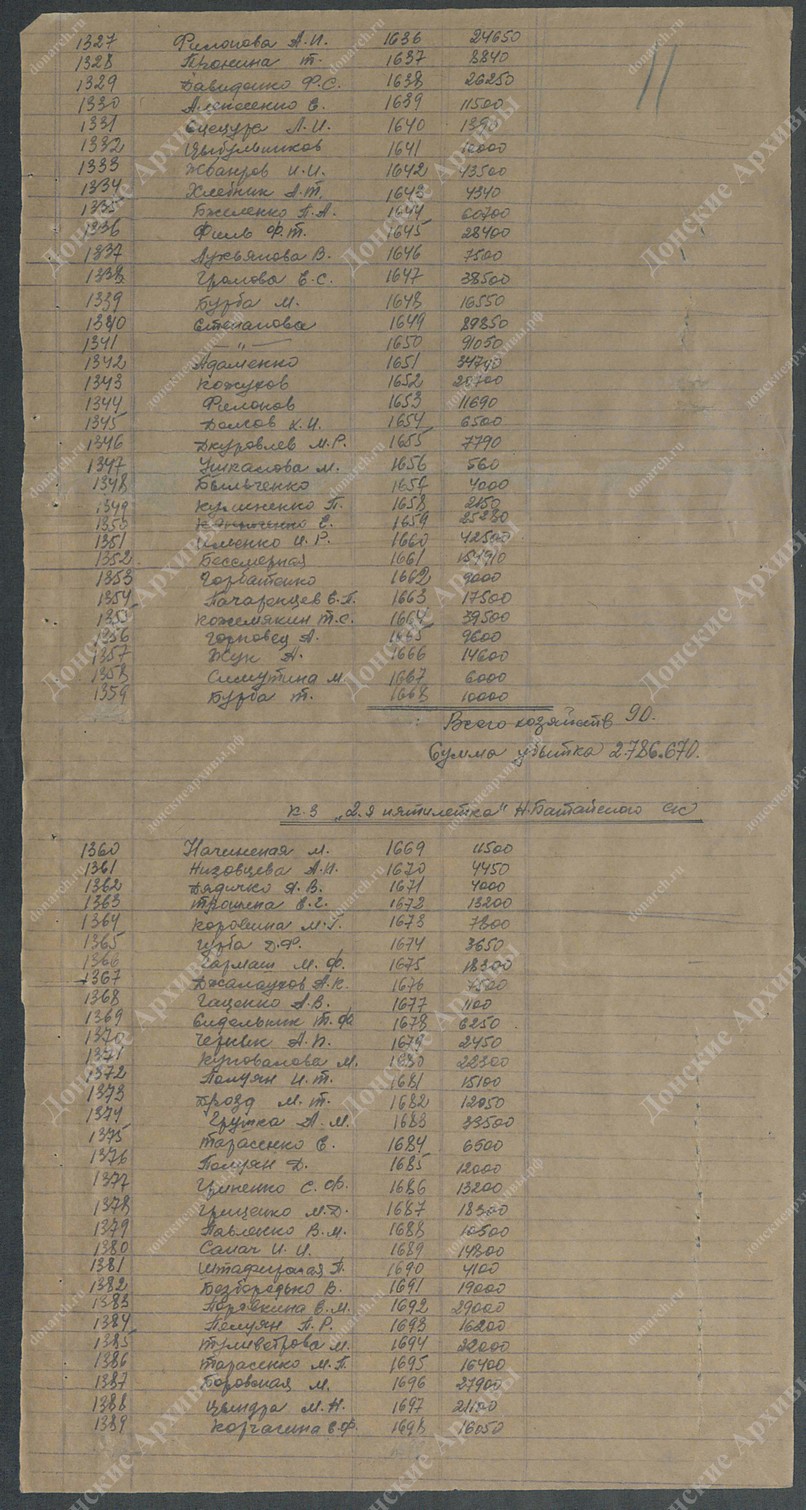 11
1327 Филонова А.И. 1636 24650
1328 Пронина Т. 1637 8840
1329 Давиденко Ф.С. 1638 26250
1330 Алексеенко Е. 1639 11500
1331 Сцецура Л.И. 1640 1390
1332 Цыбульников 1641 10000
1333 Жваиров И.И. 1642 43500
1334 Хлебник А.Т. 1643 4340
1335 Бжеленко П.А. 1644 60700
1336 Филь Ф.Т. 1645 28400
1337 Лукьянова В. 1646 7500
1338 Громова Е.С. 1647 38500
1339 Бурба М. 1648 16550
1340 Степанова 1649 89850
1341 —"— 1650 91050
1342 Адаменко 1651
1343 Кожухов 1652 20700
1344 Филонов 1653 11690
1345 Долгов К.И. 1654 6500
1346 Джуровлев М.Р. 1655 7790
1347 Чикалова М. 1656 560
1348 Быльченко 1657 4000
1349 Кушненко П. 1658 2150
1350 Е. 1659
1351 Именко И.Р. 1660 42500
1352 Бессмерная 1661
1353 Горбатенко 1662 9000
1354 Гачаренцев Е.П. 1663 17500
1355 Кожемякин Т.С. 1664 39500
1356 Горповец А. 1665 9600
1357 Жук А. 1666 14600
1358 Симутина М. 1667 6000
1359 Бурба Т. 1668 10000
Всего хозяйств 90.
Сумма убытка 2.786.670.
К-з "2-я пятилетка" Н.Батайского с/с
1360 Начиненая М. 1669 11500
1361 Низовцева А.И. 1670 4450
1362 Дядичко А.В. 1671 4000
1363 Трошена Е.Г. 1672 13200
1364 Коровина М.Г. 1673 7800
1365 Гурба Д.Ф. 1674 3650
1366 Гармаш М.Ф. 1675 18300
1367 Джалаухов А.К. 1676 7500
1368 Гаценко А.В. 1677 1100
1369 Сидельник Т.Ф. 1678 6250
1370 Черник А.П. 1679 2450
1371 Куновалова М. 1680 22300
1372 Полуян И.Т. 1681 15100
1373 Дрозд М.Т. 1682 12050
1374 Грушка А.М. 1683 33500
1375 Тарасенко Е. 1684 6500
1376 Полуян Д. 1685 12000
1377 Гриненко С.Ф. 1686 13200
1378 Грищенко М.Д. 1687 18300
1379 Павленко В.М. 1688 10500
1380 Салач И.И. 1689 14800
1381 Штафирная П. 1690 4100
1382 Безбородько В. 1691 19000
1383 Порявкина Е.М. 1692 29000
1384 Полуян П.Р. 1693 16200
1385 Туливетрова М. 1694 22000
1386 Тарасенко М.П. 1695 16400
1387 Боровская М. 1696 27900
1388 Цындра М.Н. 1697 21100
1389 Корчагина Е.Ф. 1698 16050